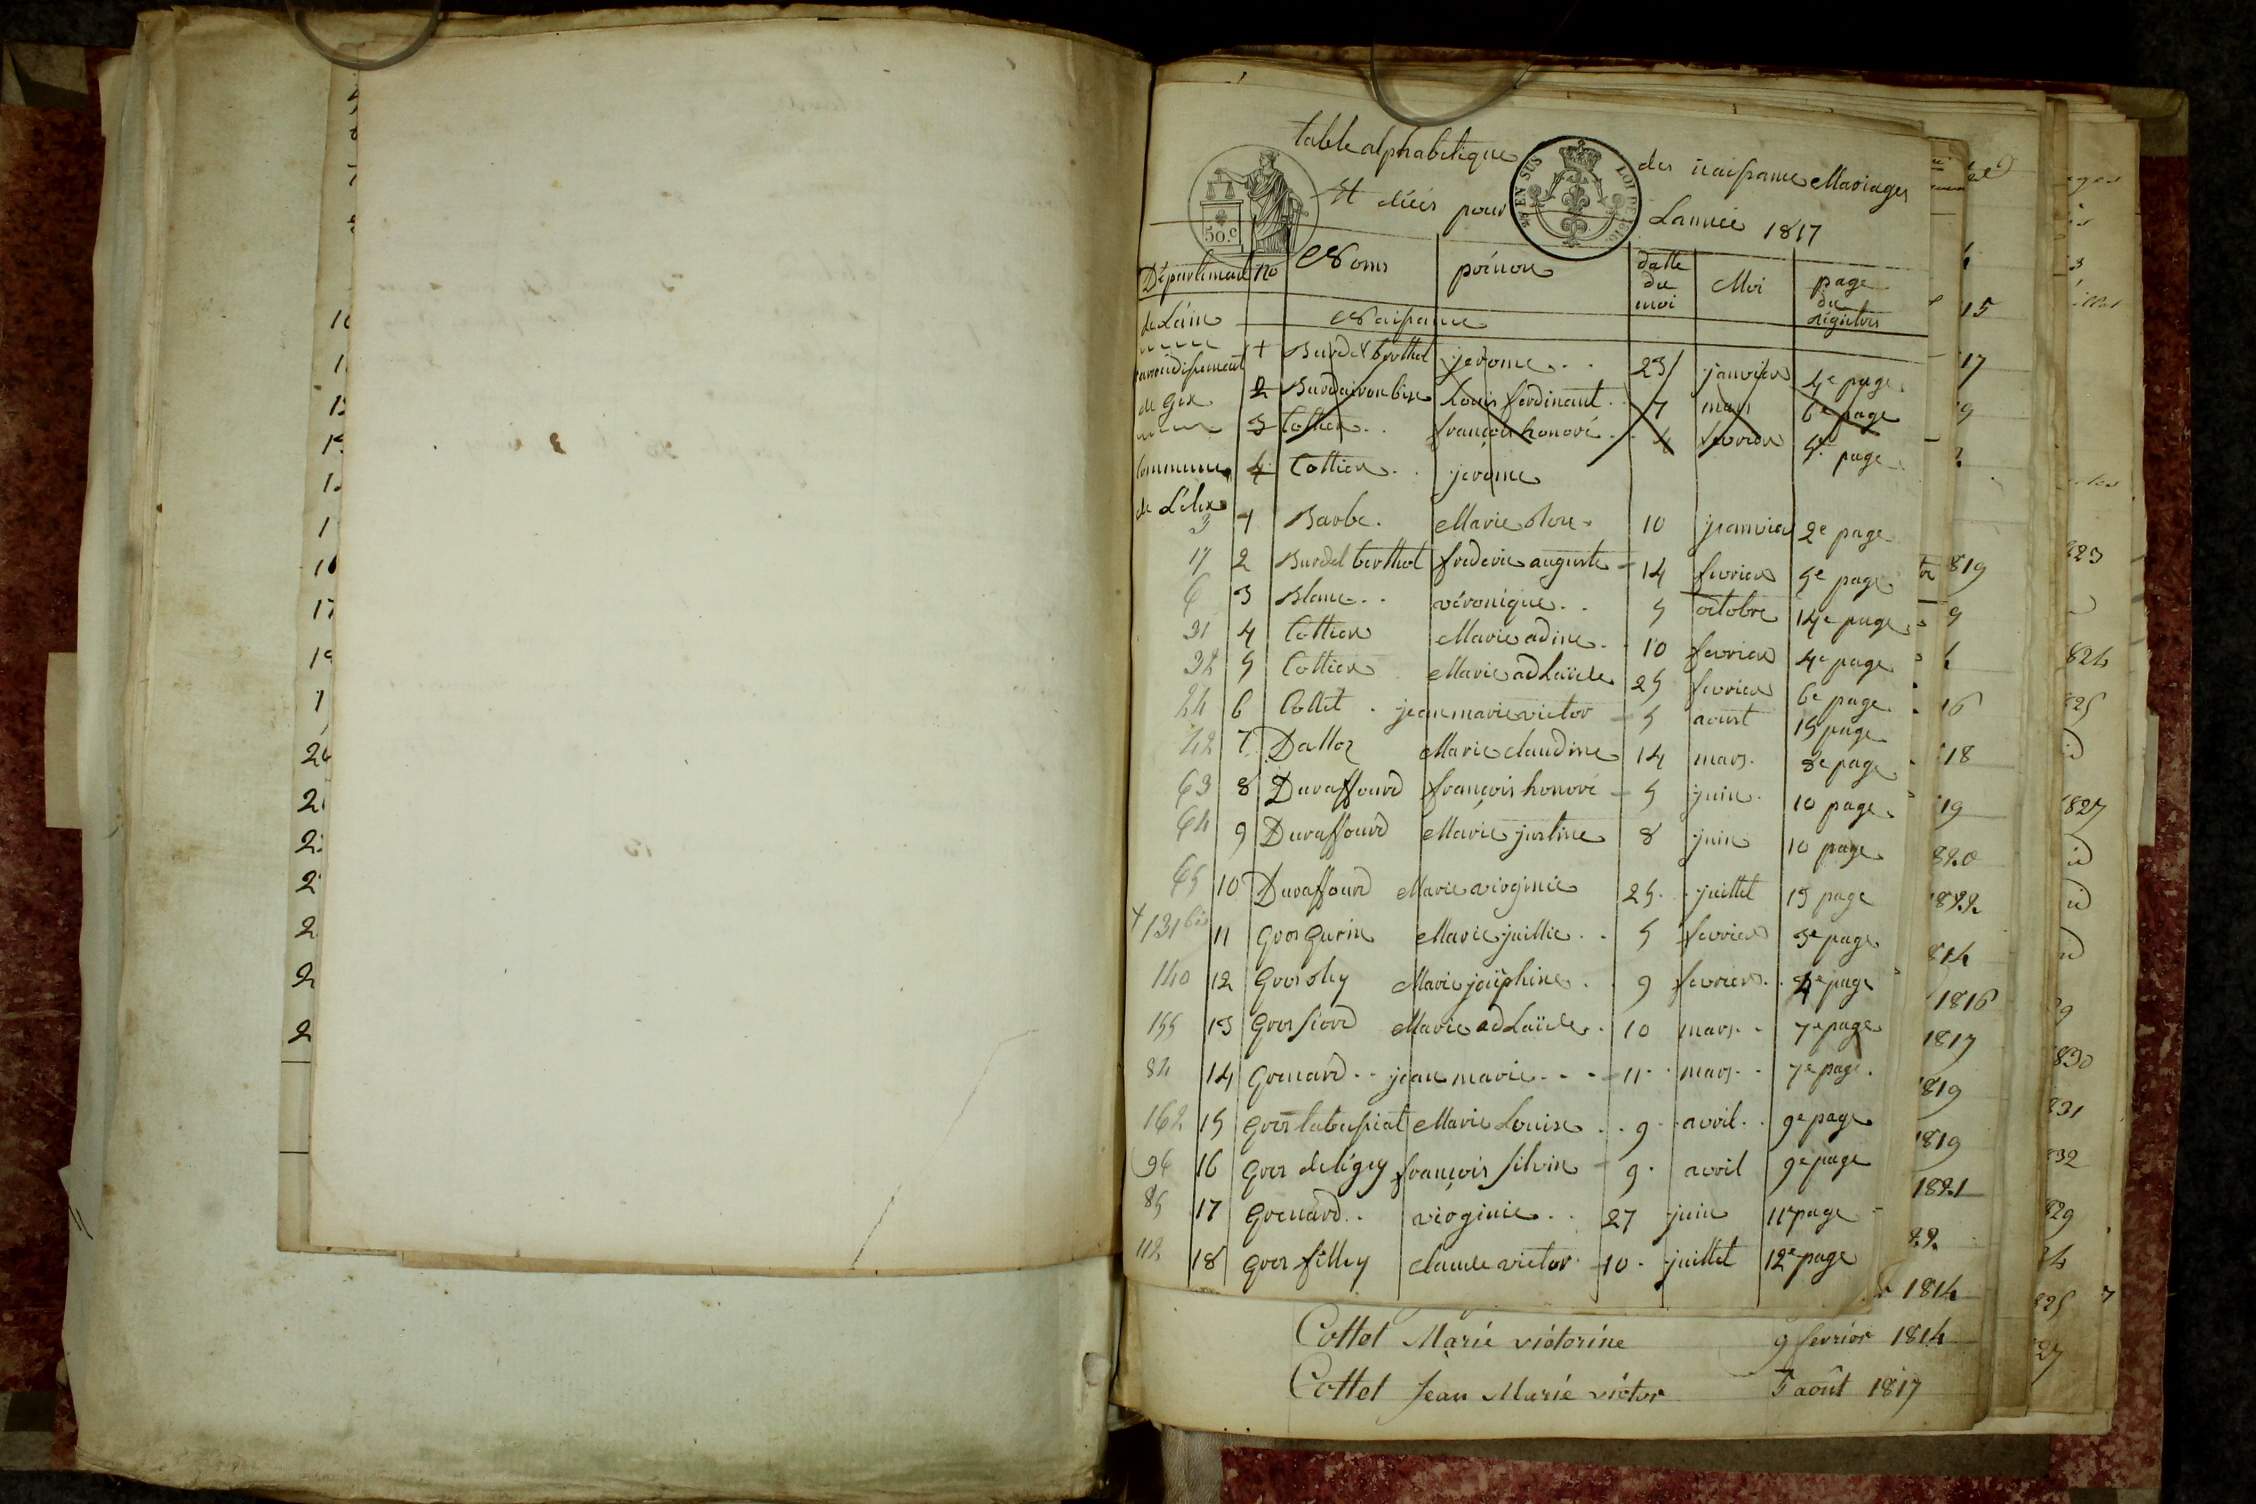 table alphabetique des naissance Mariages
Et décés pour Lannée 1817
50.c
EN SUS LOI DE 1816
Département no Noms prénon datte du moi Moi page du régistre
de Lain Naissance
arrondissement 1 Burdet berthet jerome . . 23 janvier 4e page
de Gex 2 Louis ferdinant . . 7 mars 6e page
3 Cottier . . françois honoré . . 4 fevrier 5e page
Commune 4 Cottier . . jerome
de Lelex
3 1 Barbe . Marie 10 janvier 2e page
17 2 Burdet berthet frederic auguste 14 fevrier 5e page
6 3 Blanc . . véronique . . 5 octobre 14e page
31 4 Cottier Marie adine . . 10 fevrier 4e page
32 5 Cottier Marie adLaïde 25 fevrier 6e page
24 6 Cottet . jean marie victor 5 aoust 15 page
42 7 Dalloz Marie claudine 14 mars . 8e page
63 8 Duraffourd françois honoré 5 juin . 10 page
64 9 Duraffourd Marie justine 8 juin 10 page
65 10 Duraffourd Marie virginie 25 . juillet 15 page
+ 131 bis 11 Gros Gurin Marie juillie . . 5 fevrier 3e page
140 12 Gros Marie joséphine . . 9 fevrier . . 4e page
155 13 Gros fiord Marie adLaïde . 10 mars . 7e page
84 14 Grenard . . jean marie . . . 11 . mars . . 7e page .
162 15 Gros Marie Louise . . 9 . avril . . 9e page
96 16 Gros deligey françois silvin 9 . avril 9e page
85 17 Grenard . . virginie . . 27 juin 11e page
112 18 Gros filley claude victor 10 . juillet 12e page
Cottet Marie victorine 9 fevrier 1814
Cottet Jean Marie victor 5 août 1817
15
17
819
16
18
19
820
1822
814
1816
1817
1819
1819
1821
22
1814
823
824
825
827
830
831
832
829
825
27